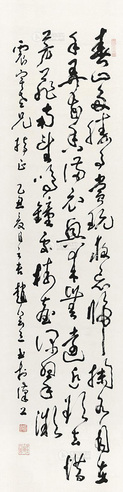 春山多勝事賞玩夜忘歸掬水月在
手弄花香滿衣興來無遠近欲去惜
芳菲南望鳴鐘處樓臺深翠微
指正 乙丑夏月 趙